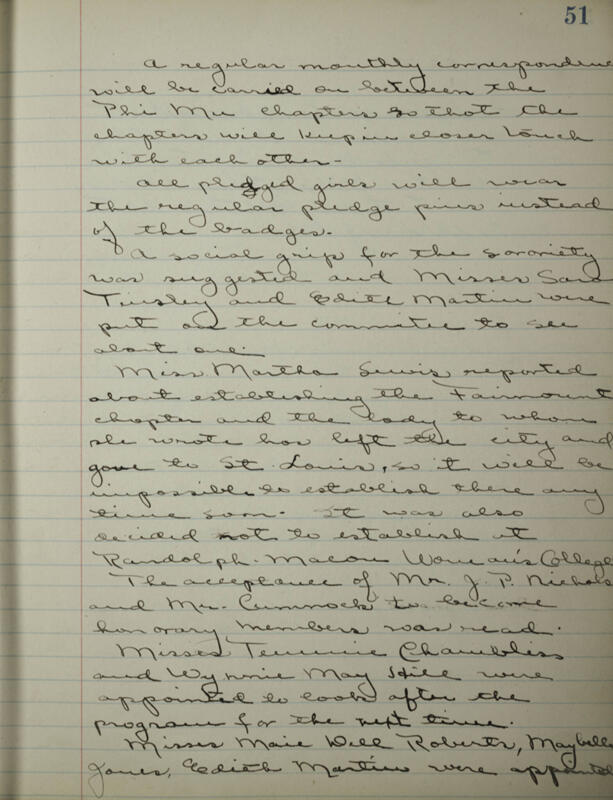 51
A regular monthly correspondence
will be carried on between the
Phi Mu chapters so that the
chapters will keep in closer touch
with each other-
All pledged girls will wear
the regular pledge pins instead
of the badges.
A social grip for the sorority
was suggested and Misses Sara
Tinsley and Edith Martin were
put on the committee to see
about one.
Miss Martha Lewis reported
about establishing the Fairmount
chapter and the lady to whom
she wrote has left the city and
gone to St. Louis, so it will be
impossible to establish there any
time soon. It was also
decided not to establish at
Randolph-Macon Woman's College
The acceptance of Mr. J. P. Nichols
and Mr. Cummock to become
honorary members was read.
Misses Chambless
and Wynnie May Hill were
appointed to look after the
program for the next time.
Misses Maie Dell Roberts, Maybelle
Jones, Edith Martin were appointed